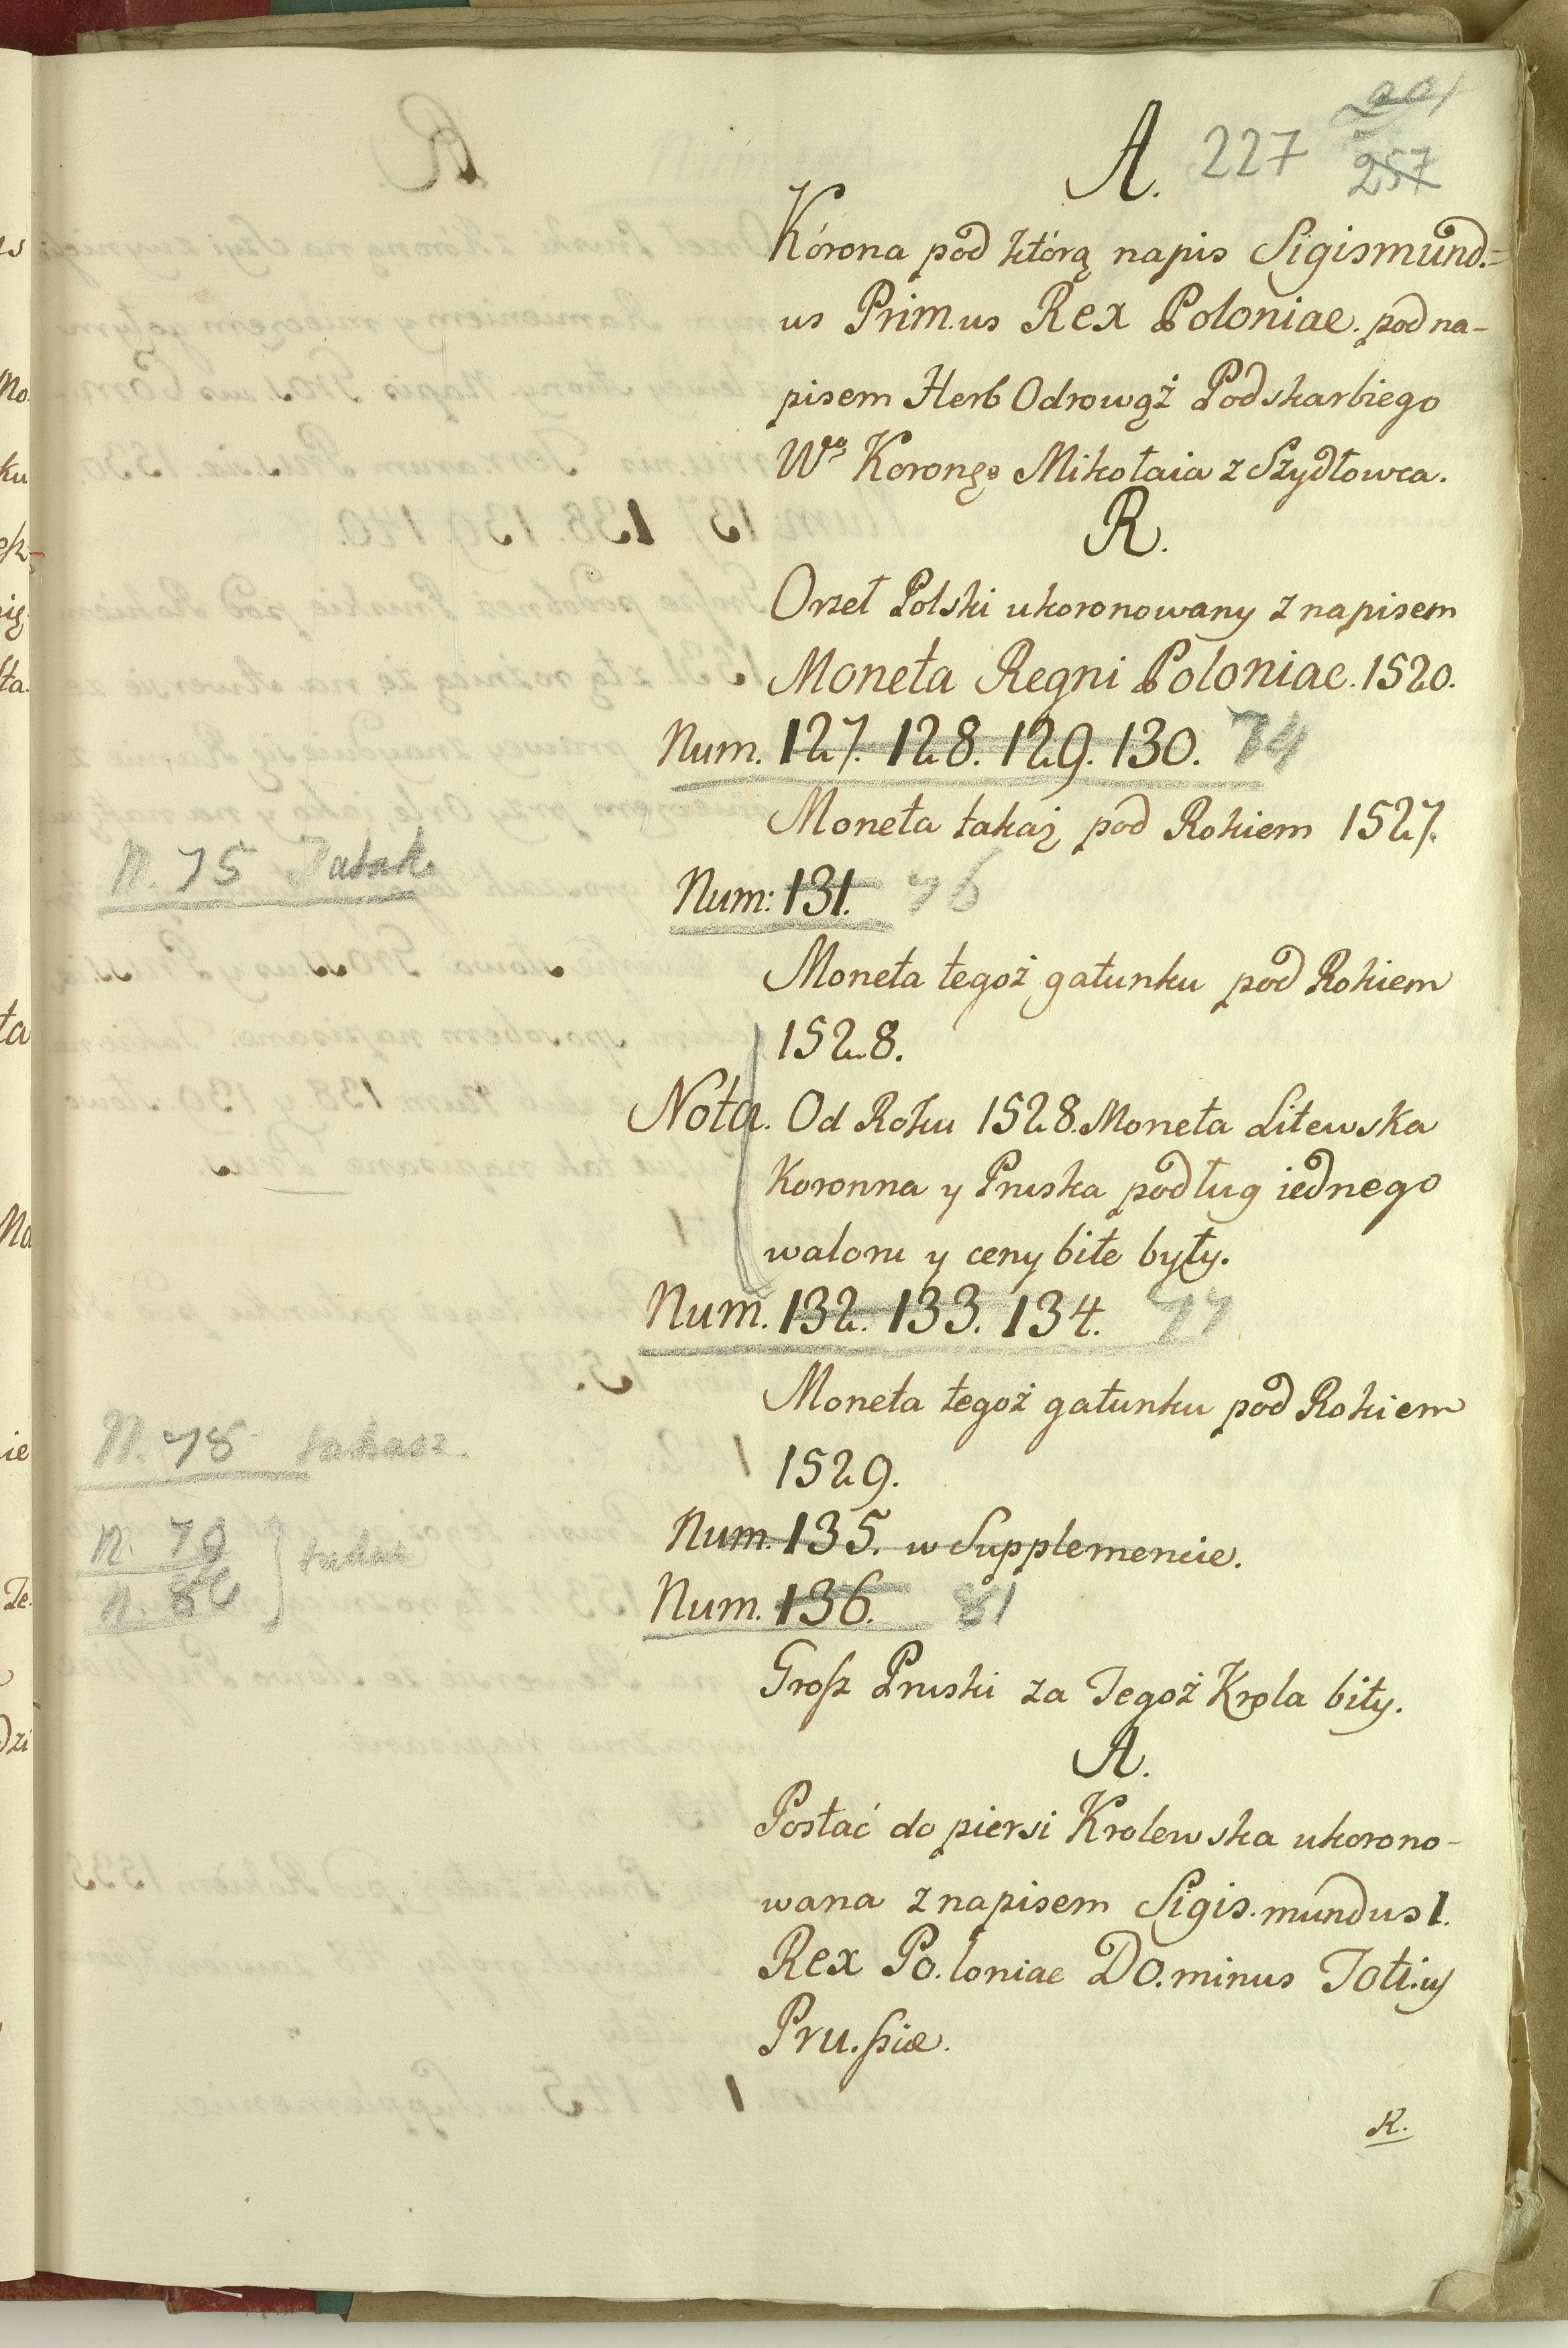 A. 227
257
Kórona pod którą napis Sigismund.=
us Prim.us Rex Poloniae. pod na-
pisem Herb Odrowąż Podskarbiego
Wgo Koronęo Mikołaia z Szydłowca.
R.
Orzeł Polski ukoronowany z napisem
Moneta Regni Poloniae. 1520.
Num. 127. 128. 129. 130. 74
Moneta takaż pod Rokiem 1527.
N. 75
Num: 131. 76
Moneta tegoż gatunku pod Rokiem
1528.
Nota. Od Roku 1528. Moneta Litewska
Koronna y Pruska podług iednego
waloru y ceny bite były.
Num. 132. 133. 134. 77
Moneta tegoż gatunku pod Rokiem
N. 78 takasz.
1529.
Num. 135. w Supplemencie.
N. 79
N. 80
Num. 136. 81
Grosz Pruski za Tegoż Krola bity.
A.
Postać do piersi Krolewska ukorono-
wana z napisem Sigis.mundus 1.
Rex Po.loniae Do.minus Toti.us
Pru.ssiæ.
R.